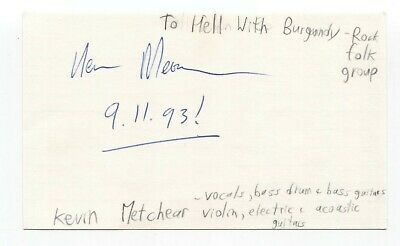 To Hell With Burgundy - Rock
folk
group
Kevin Me
9.11.93!
- vocals, bass drum & bass guitars
Kevin Metchear violin, electric & acoustic
guitars